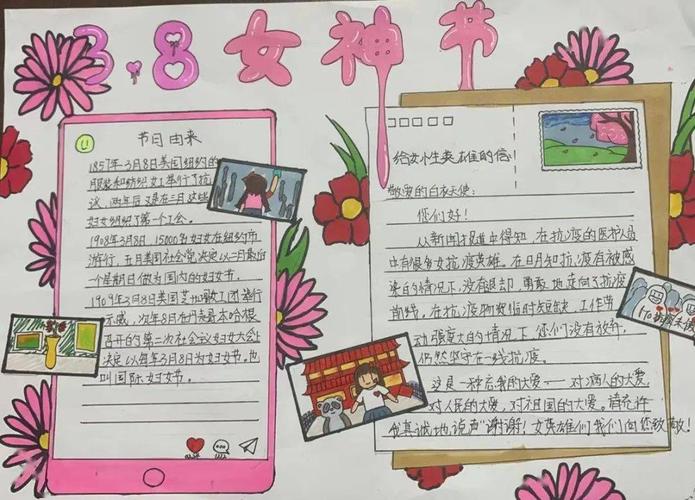 3.8女神节
节日由来
1857年3月8日美国纽约的
服装和纺织女工举行了抗
议,两年后又是在三月,这些
妇女组织了第一个工会。
1908年3月8日,15000名妇女在纽约市
游行,五月美国社会党决定以二月最后
一个星期日做为国内的妇女节。
1909年3月8日美国芝加哥女工团举行
示威,次年8月在丹麦哥本哈根
召开的第二次社会议妇女大会上
决定以每年3月8日为妇女节。也
叫国际妇女节。
给女小生英雄的信
敬爱的白衣天使:
您们好!
从新闻报道中得知,在抗疫的医护人员
中有很多女抗疫英雄。在明知抗疫有被感
染的情况下,没有退却,勇敢地走向了抗疫
前线,在抗疫物资临时短缺,工作劳
动强度大的情况下,您们没有放弃,
仍然坚守在一线抗疫。
这是一种无我的大爱——对病人的大爱,
对人民的大爱,对祖国的大爱。请允许
我真诚地说声"谢谢!女英雄们我们向您致敬!